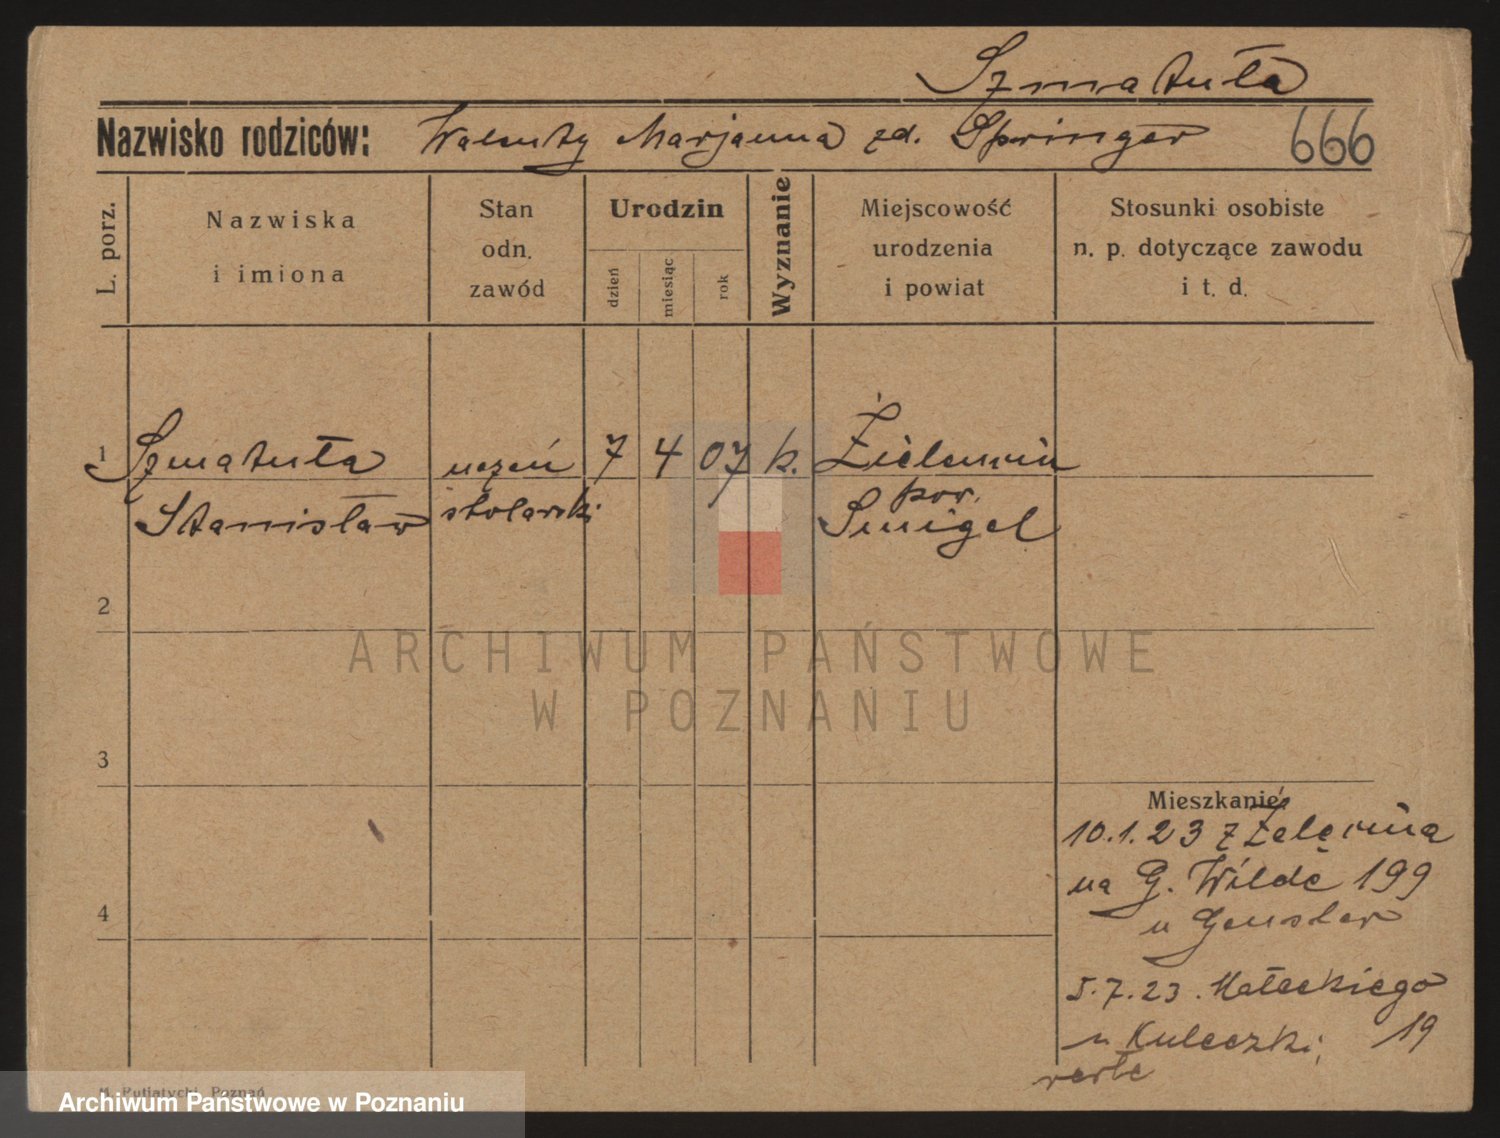 Szmatuła
Nazwisko rodziców: Walenty Marjanna zd. Springer 666
L. porz.
Nazwiska
i imiona
Stan
odn.
zawód
Urodzin
dzień
miesiąc
rok
Wyznanie
Miejscowość
urodzenia
i powiat
Stosunki osobiste
n. p. dotyczące zawodu
i t. d.
1 Szmatuła uczeń 7 4 07 k.
Stanisław stolarski pow.
Smigel
2
3
4
Mieszkanie:
10.1.23 z
na G. Wilde 199
u Gensler
5.7.23. Małeckiego
u Kuleczki, 19
verte
M. Putiatycki, Poznań
ARCHIWUM PAŃSTWOWE
W POZNANIU
Archiwum Państwowe w Poznaniu